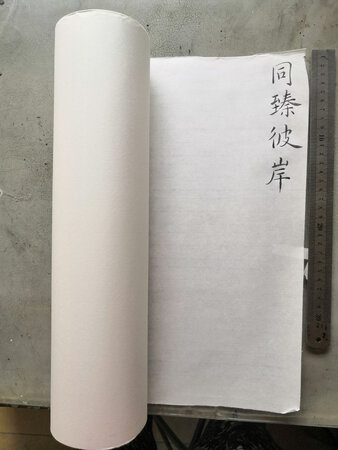 同臻彼岸